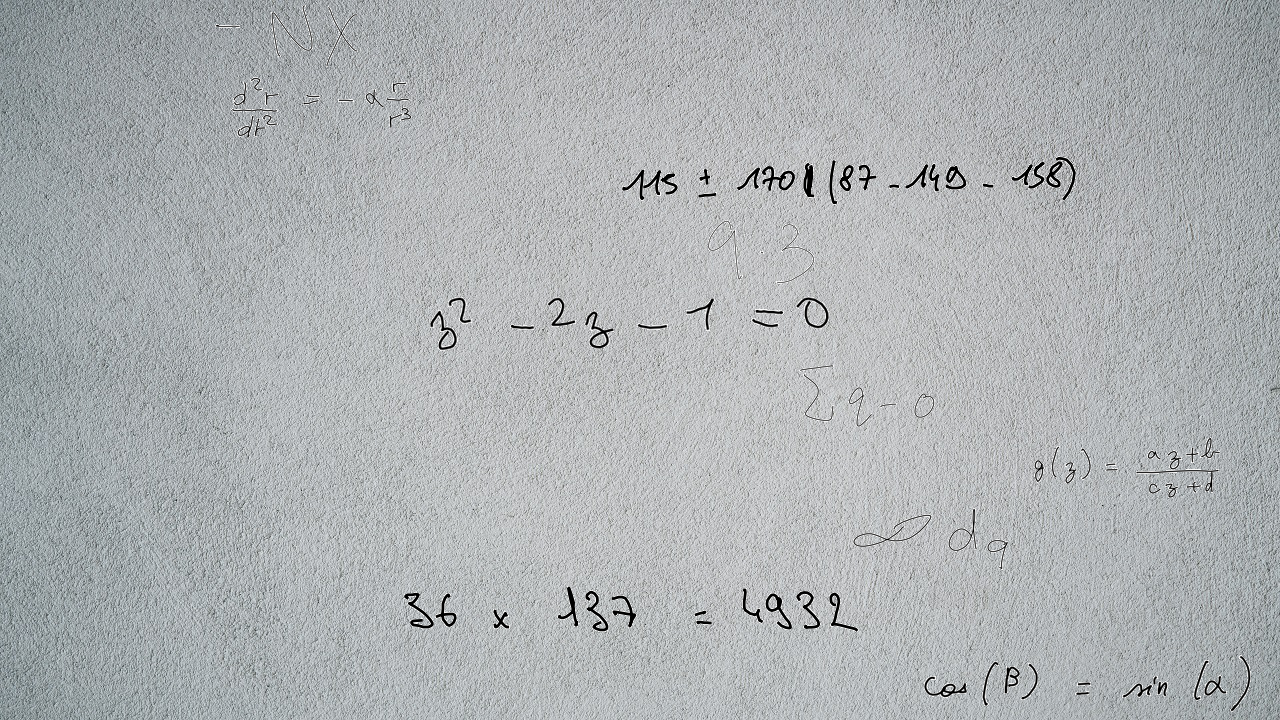 - NX
d²r/dt² = - α r/r³
115 ± 170 (87 - 149 - 158)
9.3
z² - 2z - 1 = 0
Σ q - 0
g(z) = az+b/cz+d
∞ dq
36 x 137 = 4932
cos(β) = sin(α)